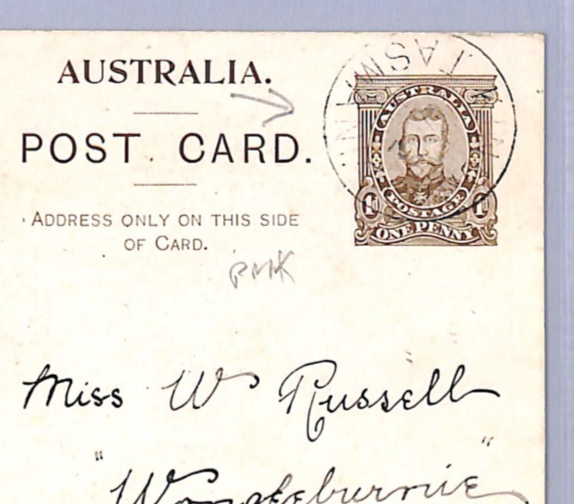 AUSTRALIA.
POST CARD.
ADDRESS ONLY ON THIS SIDE
OF CARD.
TASM
AUSTRALIA
POSTAGE
1d 1d
ONE PENNY
PMK
Miss W Russell
"
"